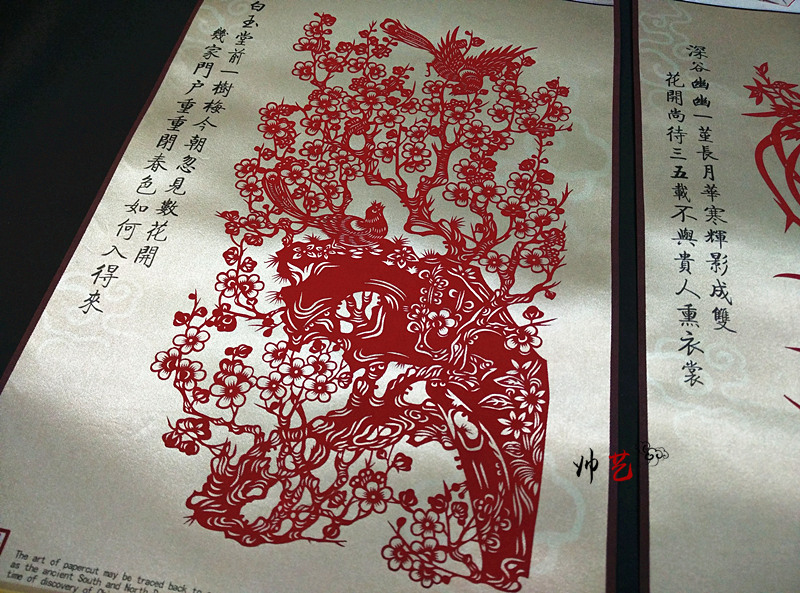 白玉堂前一樹梅今朝忽見數花開
幾家門户重重閉春色如何入得來
深谷幽幽一莖長月華寒輝影成雙
花開尚待三五載不與貴人熏衣裳
帅艺
The art of papercut may be traced back to
as the ancient South and North
time of discovery of